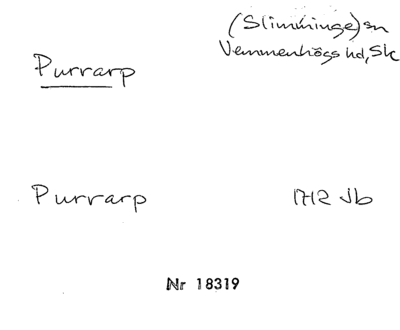 (Slimminge) sn
Vemmenhögs hd, Sk
Purrarp
Purrarp 1712 Jb
Nr 18319